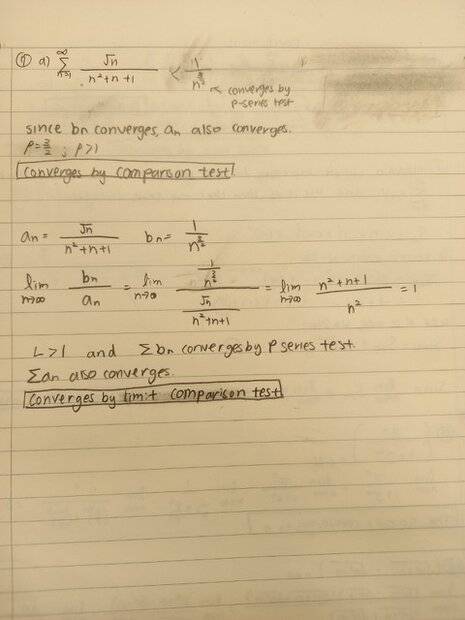 ① a) ∞ Σ n=1 √n / n²+n+1 < 1 / n^(3/2)
↖ converges by
p-series test
since bn converges, an also converges.
P=3/2 ; P>1
Converges by comparison test
an= √n / n²+n+1 bn= 1 / n^(3/2)
lim n→∞ bn / an = lim n→∞ (1 / n^(3/2)) / (√n / n²+n+1) = lim n→∞ n²+n+1 / n² = 1
L>1 and Σbn converges by P series test.
Σan also converges.
Converges by limit comparison test